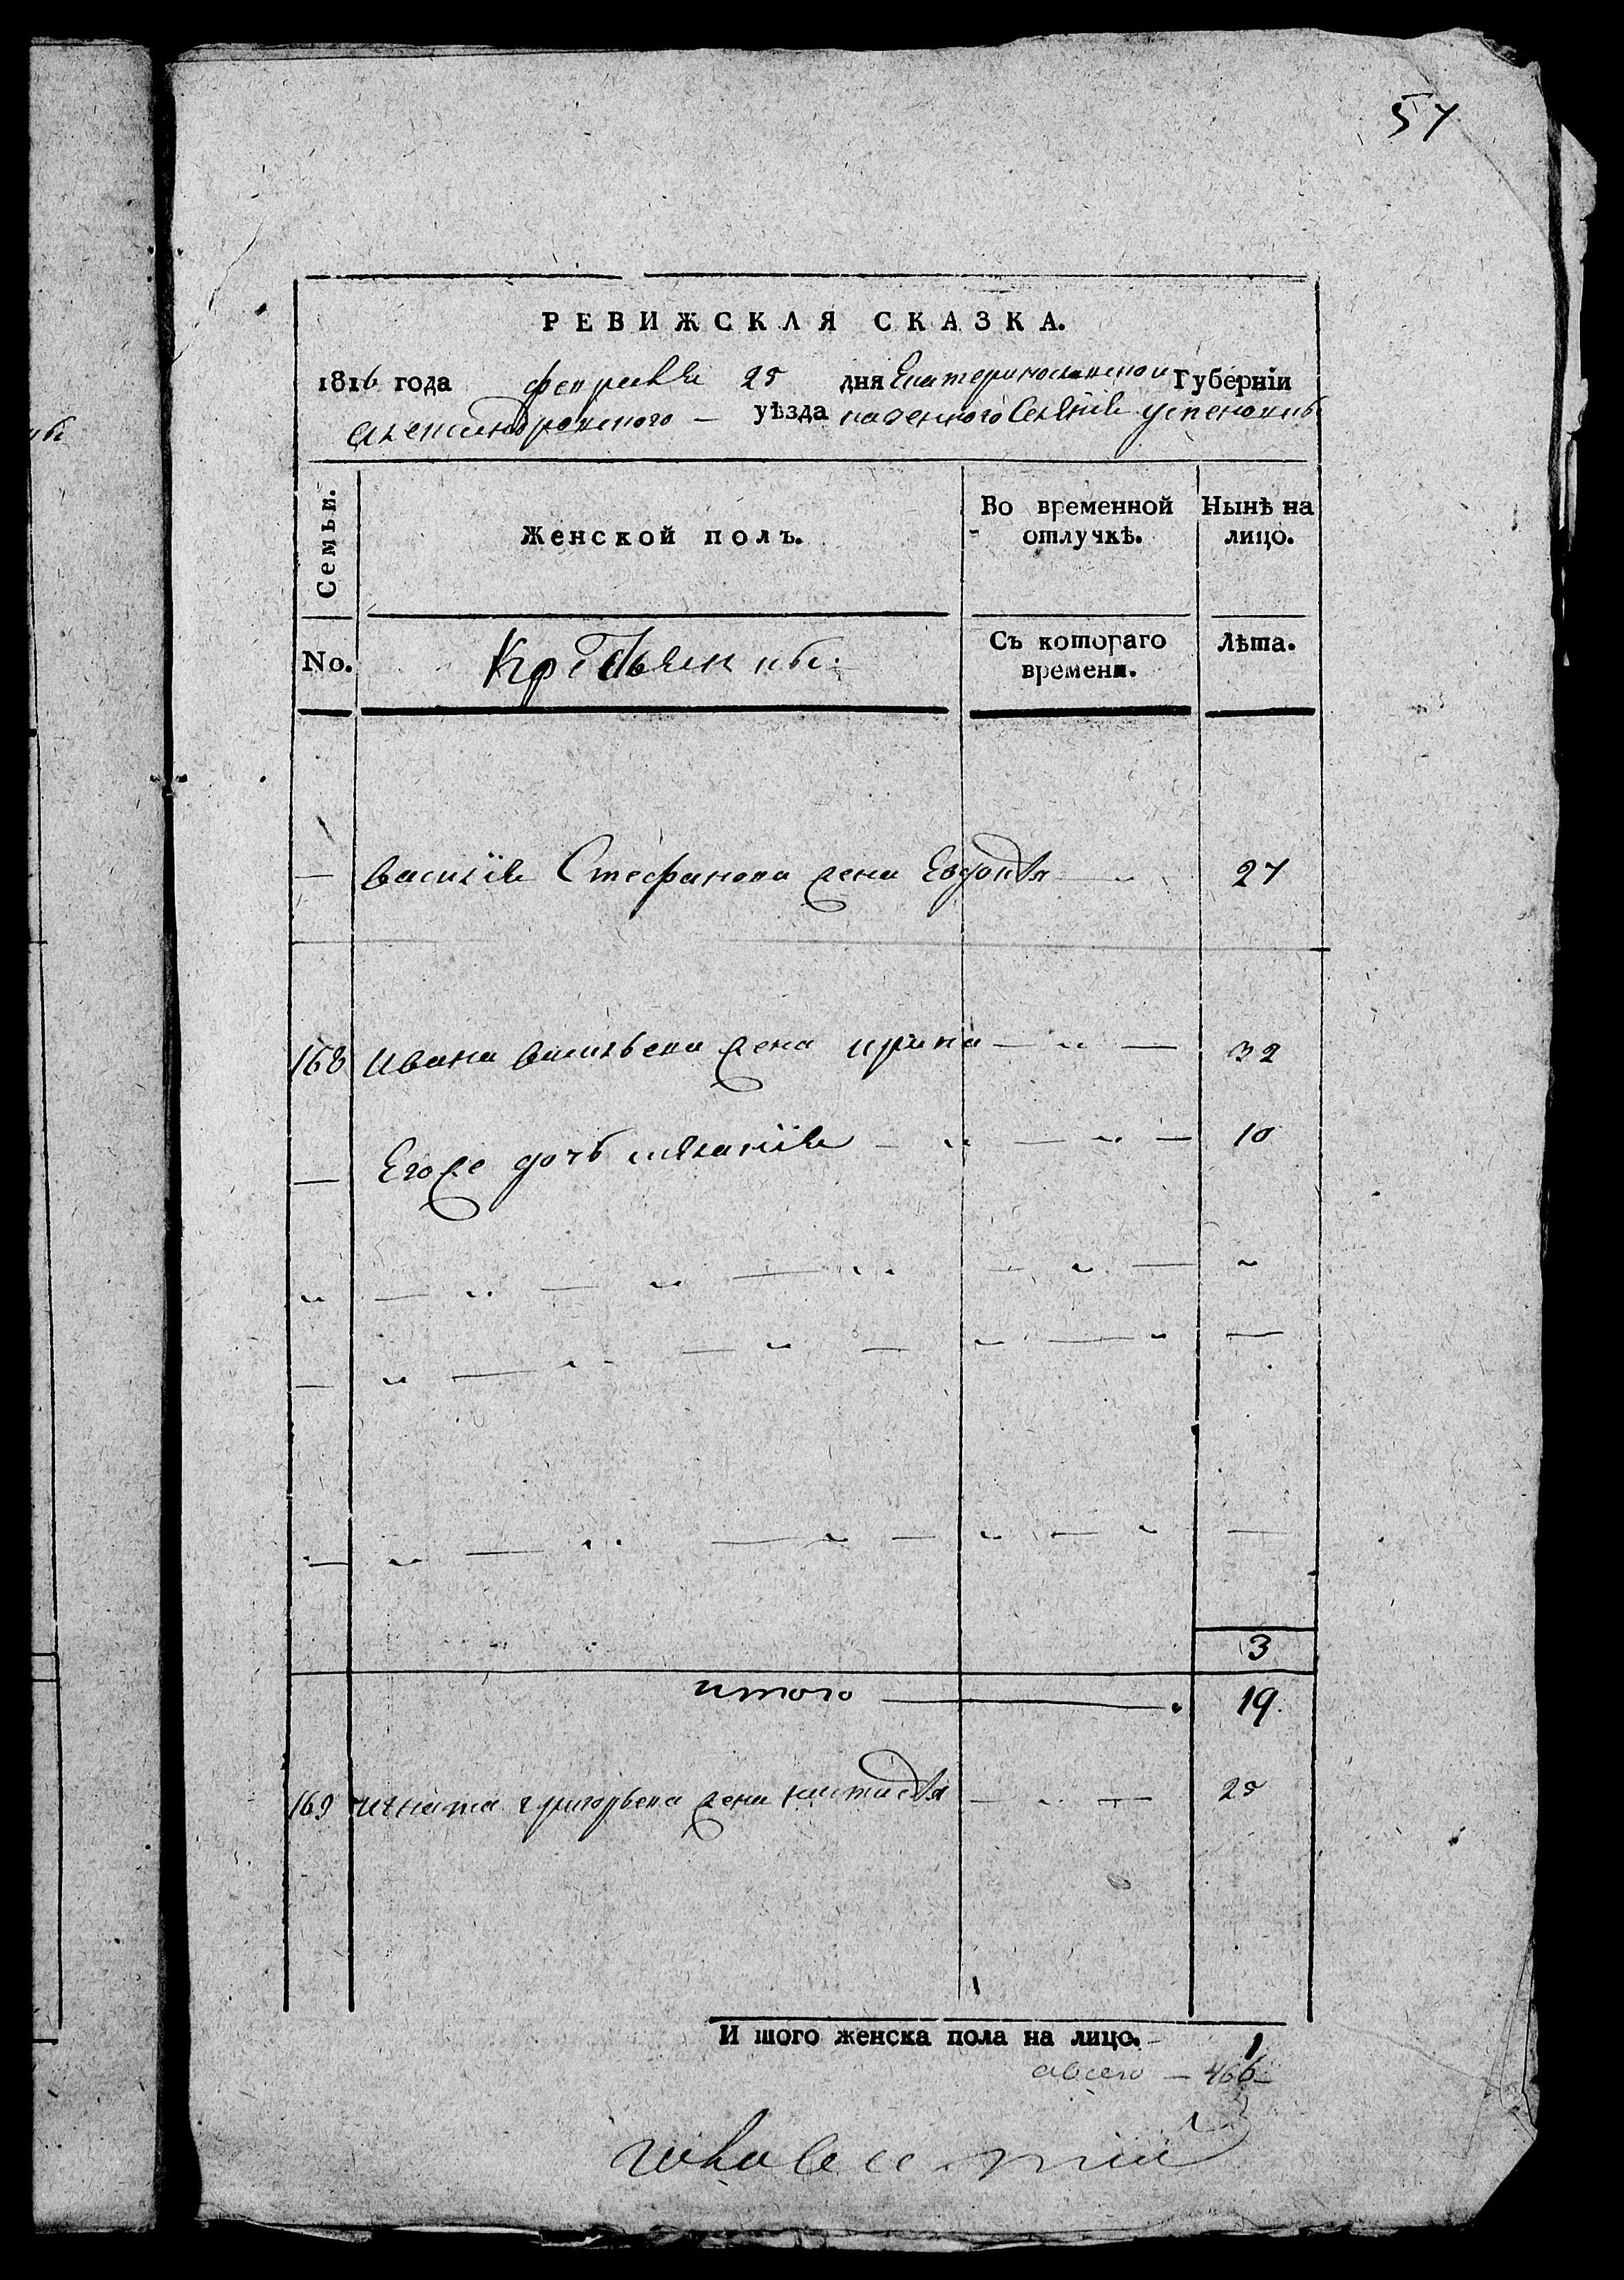 57
РЕВИЖСКАЯ СКАЗКА.
1816 года февраля 25 дня Екатеринославской Губерніи
Александровского — уѣзда казенного Селенія успеновки
Семьи.
Женской полъ.
Во временной отлучкѣ.
Нынѣ на лицо.
No.
Крестьянки:
Съ котораго времени.
Лѣта.
— василія Стефанова жена Евдокія — 27
168 Ивана васильева жена ирина — 32
— Егоже дочь мелания — 10
3
итого — 19.
169 игната григорьева жена настасія — 25
И того женска пола на лицо. 1
а всего — 466